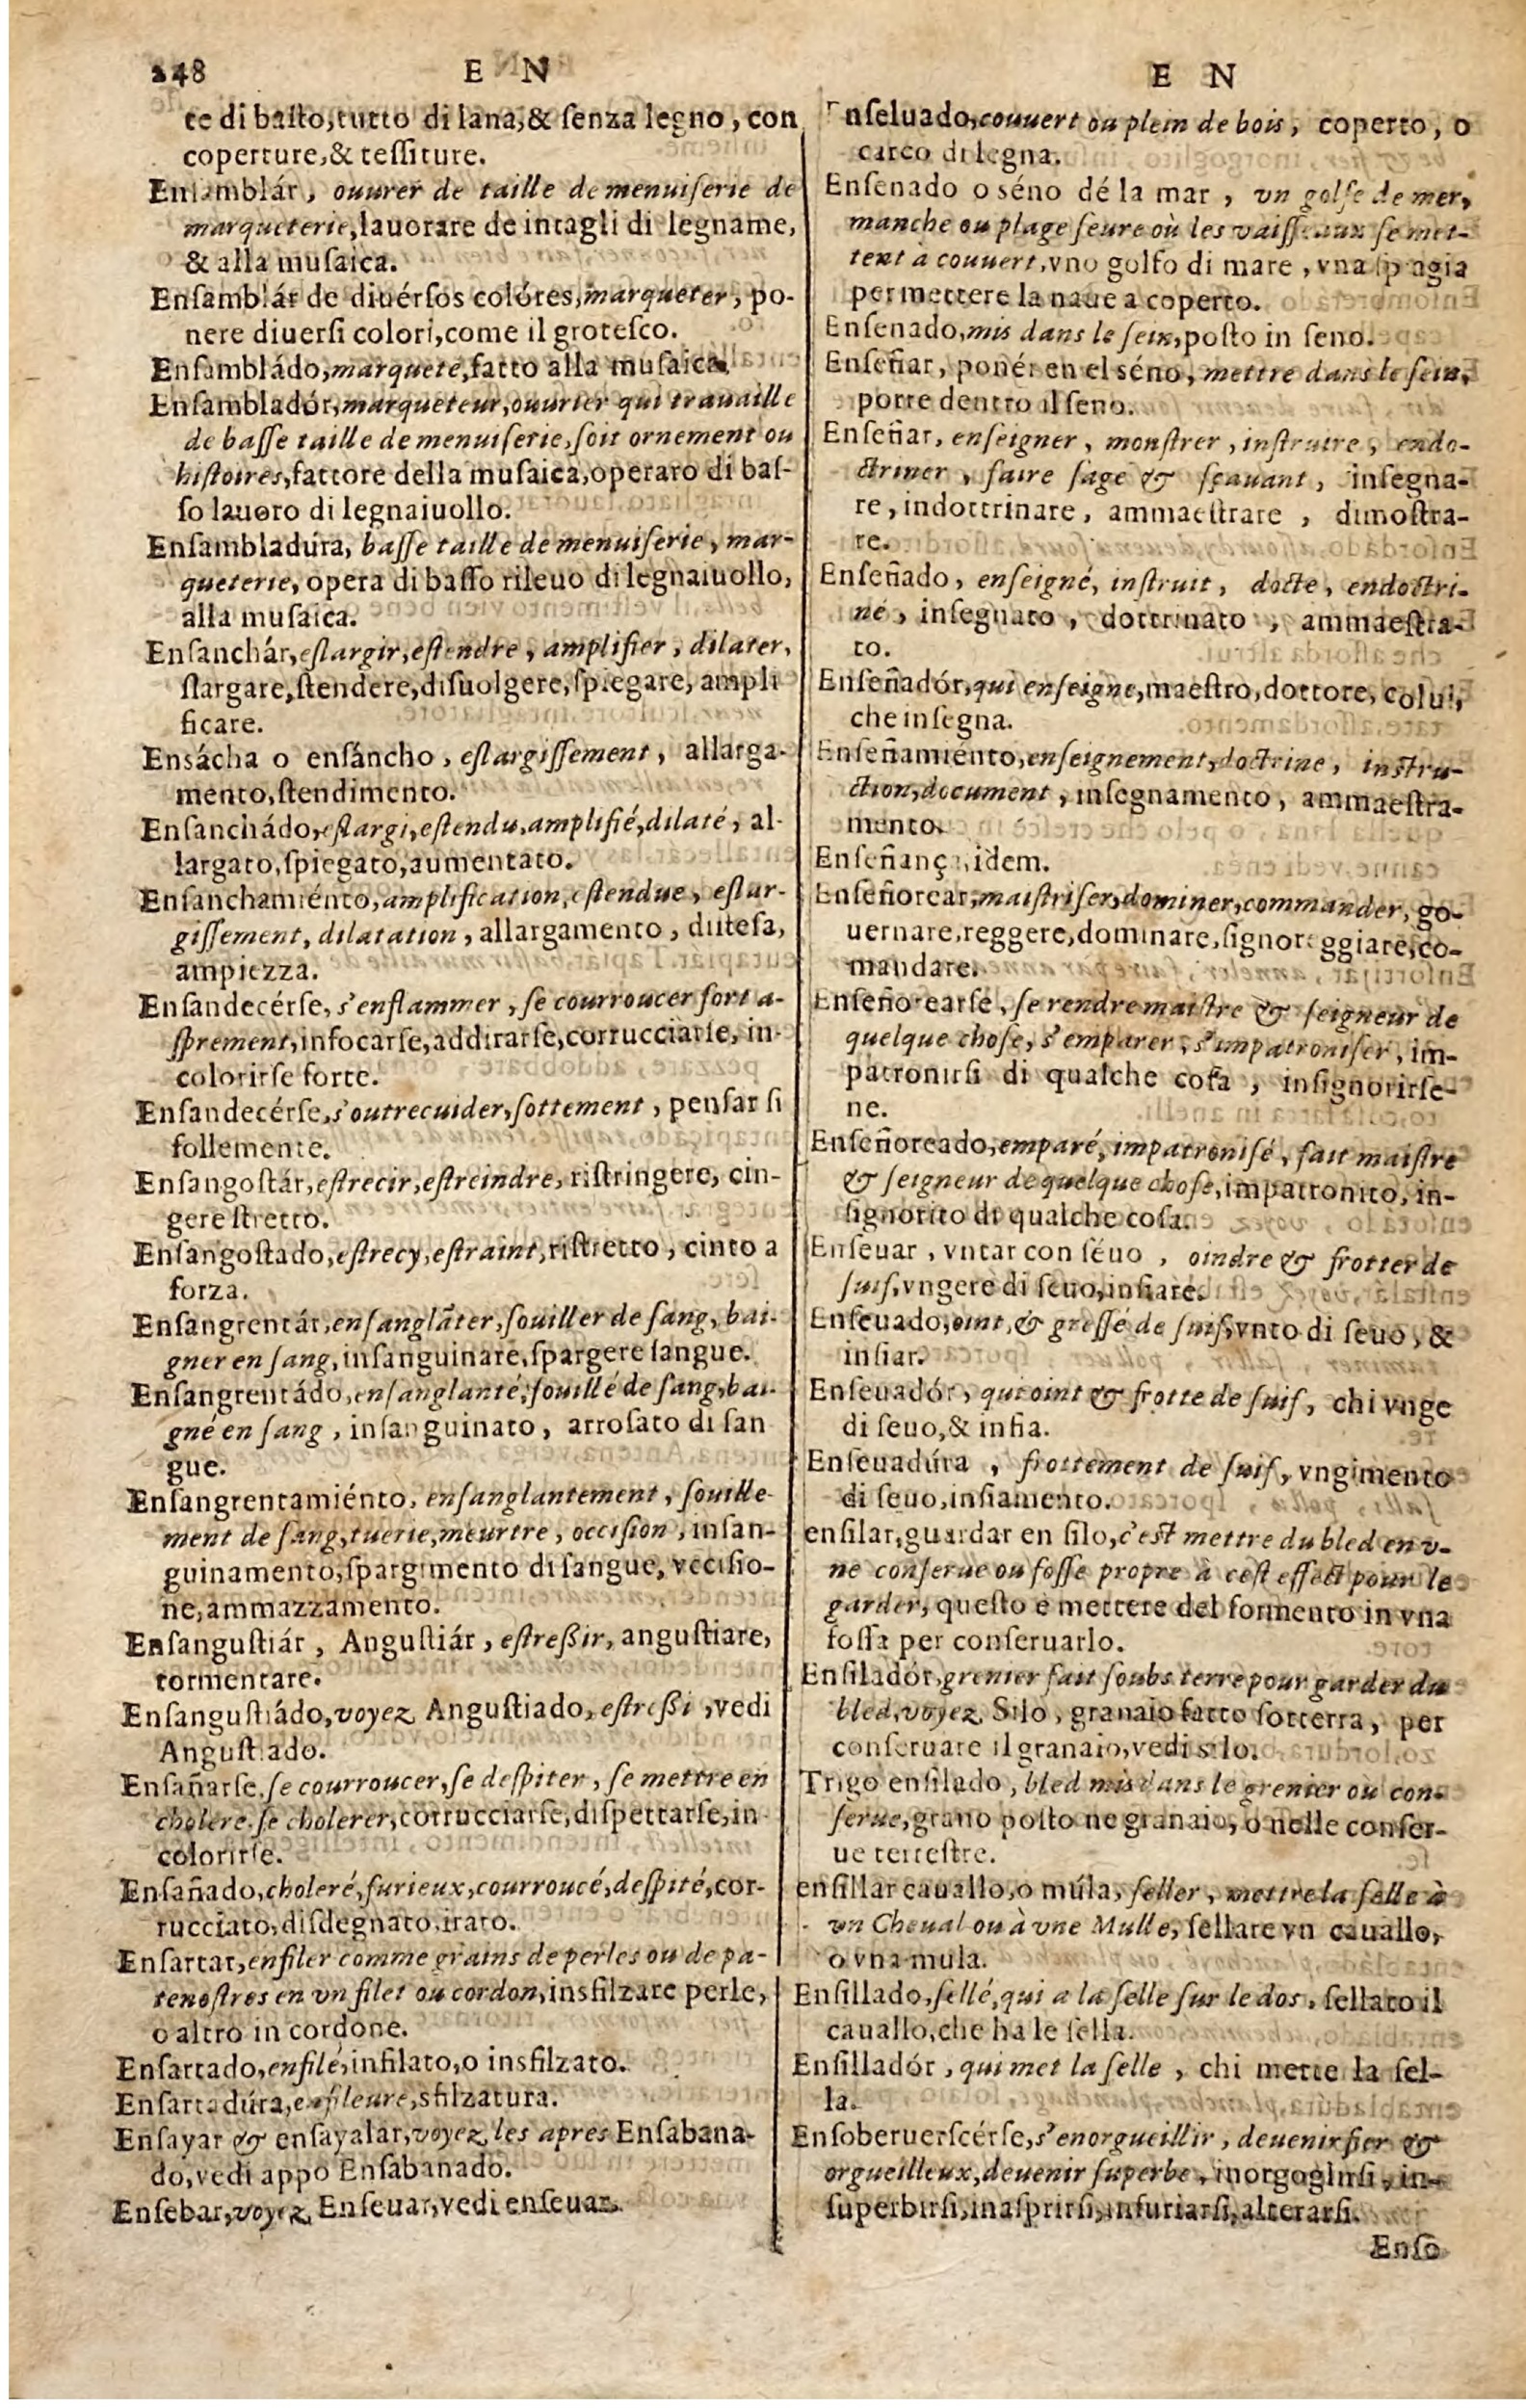 248 E N
te di basto, tutto di lana, & senza legno, con
coperture, & tessiture.
Ensamblár, ouurer de taille de menuiserie de
marqueterie, lauorare de intagli di legname,
& alla musaica.
Ensamblár de diuérsos colóres, marqueter, po-
nere diuersi colori, come il grotesco.
Ensambládo, marqueté, fatto alla musaica.
Ensambladór, marqueteur, ouurier qui trauaille
de basse taille de menuiserie, soit ornement ou
histoires, fattore della musaica, operaro di bas-
so lauoro di legnaiuollo.
Ensambladúra, basse taille de menuiserie, mar-
queterie, opera di basso rileuo di legnaiuollo,
alla musaica.
Ensanchár, eslargir, estendre, amplifier, dilater,
slargare, stendere, disuolgere, spiegare, ampli
ficare.
Ensácha o ensáncho, eslargissement, allarga-
mento, stendimento.
Ensanchádo, eslargi, estendu, amplifié, dilaté, al-
largato, spiegato, aumentato.
Ensanchamiénto, amplification, estendue, eslar-
gissement, dilatation, allargamento, distesa,
ampiezza.
Ensandecérse, s'enflammer, se courroucer fort a-
sprement, infocarse, addirarse, corrucciarse, in-
colorirse forte.
Ensandecérse, s'outrecuider, sottement, pensar si
follemente.
Ensangostár, estrecir, estreindre, ristringere, cin-
gere stretto.
Ensangostado, estrecy, estraint, ristretto, cinto a
forza.
Ensangrentár, ensanglãter, souiller de sang, bai-
gner en sang, insanguinare, spargere sangue.
Ensangrentádo, ensanglanté, souillé de sang, bai-
gné en sang, insanguinato, arrosato di san
gue.
Ensangrentamiénto, ensanglantement, souille-
ment de sang, tuerie, meurtre, occision, insan-
guinamento, spargimento di sangue, vccisio-
ne, ammazzamento.
Ensangustiár, Angustiár, estreßir, angustiare,
tormentare.
Ensangustiádo, voyez Angustiado, estreßi, vedi
Angustiado.
Ensañarse, se courroucer, se despiter, se mettre en
cholere, se cholerer, corrucciarse, dispettarse, in
colorirse.
Ensañado, choleré, furieux, courroucé, despité, cor-
rucciato, disdegnato, irato.
Ensartar, enfiler comme grains de perles ou de pa-
tenostres en vn filet ou cordon, insfilzare perle,
o altro in cordone.
Ensartado, enfilé, infilato, o insfilzato.
Ensartadúra, enfileure, sfilzatura.
Ensayar & ensayalar, voyez les apres Ensabana-
do, vedi appo Ensabanado.
Ensebar, voyez Enseuar, vedi enseuar.
E N
Enseluado, couuert ou plein de bois, coperto, o
carco di legna.
Ensenado o séno dé la mar, vn golfe de mer,
manche ou plage seure où les vaisseaux se met-
tent à couuert, vno golfo di mare, vna spiagia
per mettere la naue a coperto.
Ensenado, mis dans le sein, posto in seno.
Enseñar, ponér en el séno, mettre dans le sein,
porre dentro il seno.
Enseñar, enseigner, monstrer, instruire, endo-
ctriner, faire sage & sçauant, insegna-
re, indottrinare, ammaestrare, dimostra-
re.
Enseñado, enseigné, instruit, docte, endoctri-
né, insegnato, dottrinato, ammaestra-
to.
Enseñadór, qui enseigne, maestro, dottore, colui,
che insegna.
Enseñamiénto, enseignement, doctrine, instru-
ction, document, insegnamento, ammaestra-
mento.
Enseñança, idem.
Enseñorear, maistriser, dominer, commander, go-
uernare, reggere, dominare, signoreggiare, co-
mandare.
Enseñorearse, se rendre maistre & seigneur de
quelque chose, s'emparer, s'impatroniser, im-
patronirsi di qualche cosa, insignorirse-
ne.
Enseñoreado, emparé, impatronisé, fait maistre
& seigneur de quelque chose, impatronito, in-
signorito di qualche cosa.
Enseuar, vntar con séuo, oindre & frotter de
suif, vngere di seuo, insiare.
Enseuado, oint, & gressé de suif, vnto di seuo, &
insiar.
Enseuadór, qui oint & frotte de suif, chi vnge
di seuo, & insia.
Enseuadúra, frottement de suif, vngimento
di seuo, insiamento.
ensilar, guardar en silo, c'est mettre du bled en v-
ne conserue ou fosse propre à cest effect pour le
garder, questo e mettere del formento in vna
fossa per conseruarlo.
Ensiladór, grenier fait soubs terre pour garder du
bled, voyez Silo, granaio fatto sotterra, per
conseruare il granaio, vedi silo.
Trigo ensilado, bled mis dans le grenier ou con-
serue, grano posto ne granaio, o nelle conser-
ue terrestre.
ensillar cauallo, o múla, seller, mettre la selle à
vn Cheual ou à vne Mulle, sellare vn cauallo,
o vna mula.
Ensillado, sellé, qui a la selle sur le dos, sellato il
cauallo, che ha le sella.
Ensilladór, qui met la selle, chi mette la sel-
la.
Ensoberuerscérse, s'enorgueillir, deuenir fier &
orgueilleux, deuenir superbe, inorgoglirsi, in-
superbirsi, inasprirsi, infuriarsi, alterarsi.
Enso